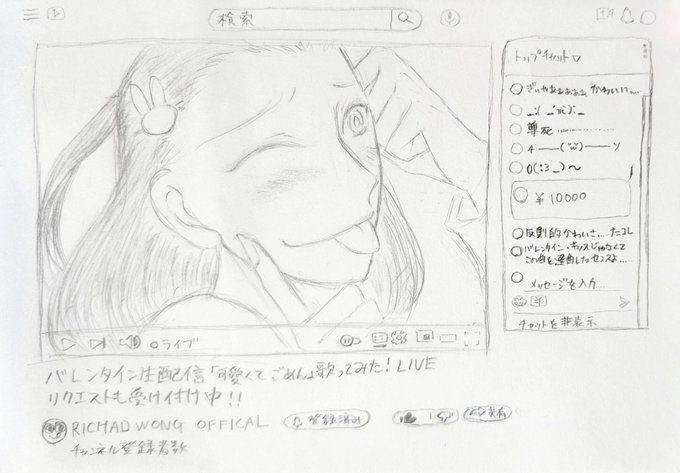 検索
トップチャット
ぎいやあぁぁぁぁぁ かわいい...
_:( _´ㅠ`):_
尊死..............
4 ――(°ω°)―― ッ
0(:3 _)～
¥10000
反則的かわいさ... たコレ
バレンタイン・キッスじゃなくて
この曲を選曲したセンスよ....
メッセージを入力...
¥
チャットを非表示
ライブ
バレンタイン生配信「可愛くてごめん」歌ってみた！LIVE
リクエストも受け付け中！！
RICHAD WONG OFFICAL
登録済み
共有
チャンネル登録者数